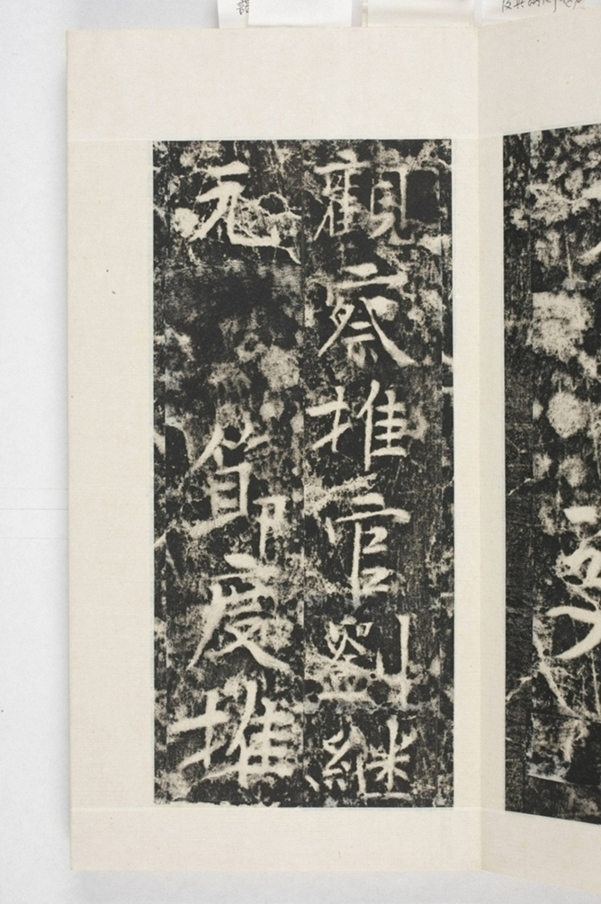 觀察推官劉継
元
節度推